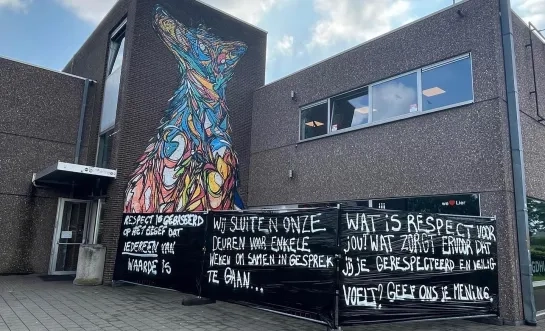 we ❤ Lier
RESPECT IS GEBASEERD
OP HET BESEF DAT
IEDEREEN VAN
WAARDE IS
WIJ SLUITEN ONZE
DEUREN VOOR ENKELE
WEKEN OM SAMEN IN GESPREK
TE GAAN...
WAT IS RESPECT VOOR
JOU? WAT ZORGT ERVOOR DAT
JIJ JE GERESPECTEERD EN VEILIG
VOELT? GEEF ONS JE MENING.